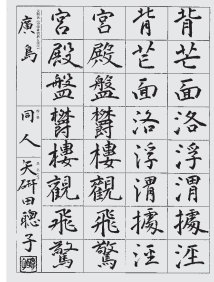 背芒面洛浮渭據涇
背芒面洛浮渭據涇
宮殿盤欝樓觀飛驚
宮殿盤欝樓觀飛驚
廣島 同人 矢研田聰子